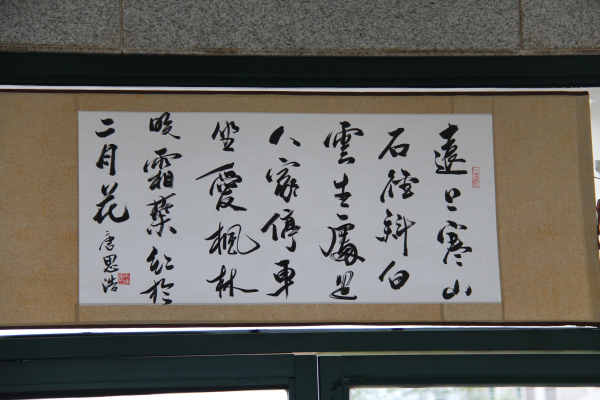 遠上寒山
石徑斜白
雲生處是
人家停車
坐愛楓林
晚霜葉紅於
二月花
唐思浩